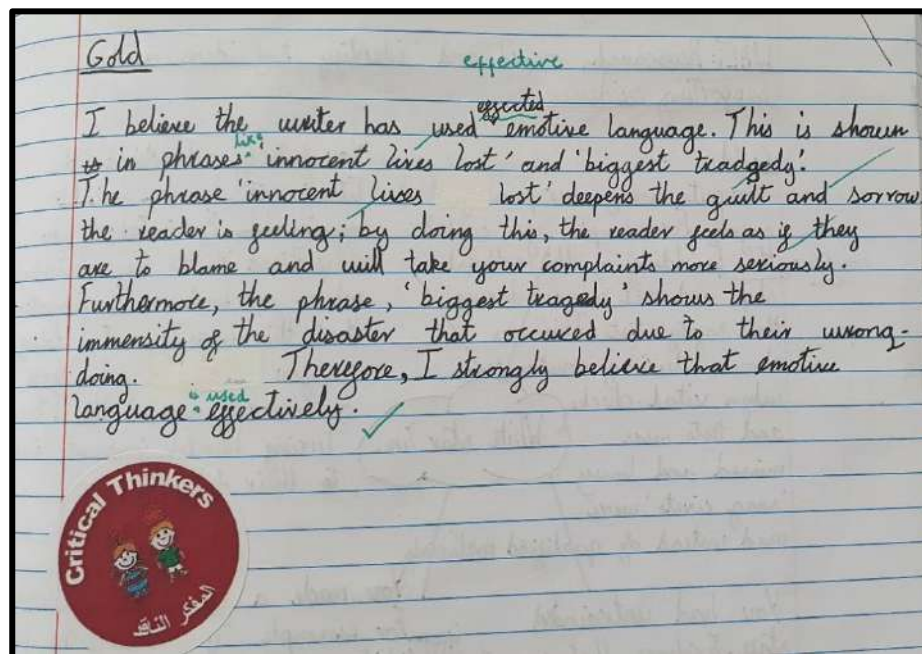 Gold
effective
effected
I believe the writer has used emotive language. This is shown
like
in phrases: 'innocent lives lost' and 'biggest tradgedy'.
The phrase 'innocent lives lost' deepens the guilt and sorrow
the reader is feeling; by doing this, the reader feels as if they
are to blame and will take your complaints more seriously.
Furthermore, the phrase, 'biggest tragedy' shows the
immensity of the disaster that occured due to their wrong-
doing. Therefore, I strongly believe that emotive
is used
language effectively.
Critical Thinkers
المفكر الناقد